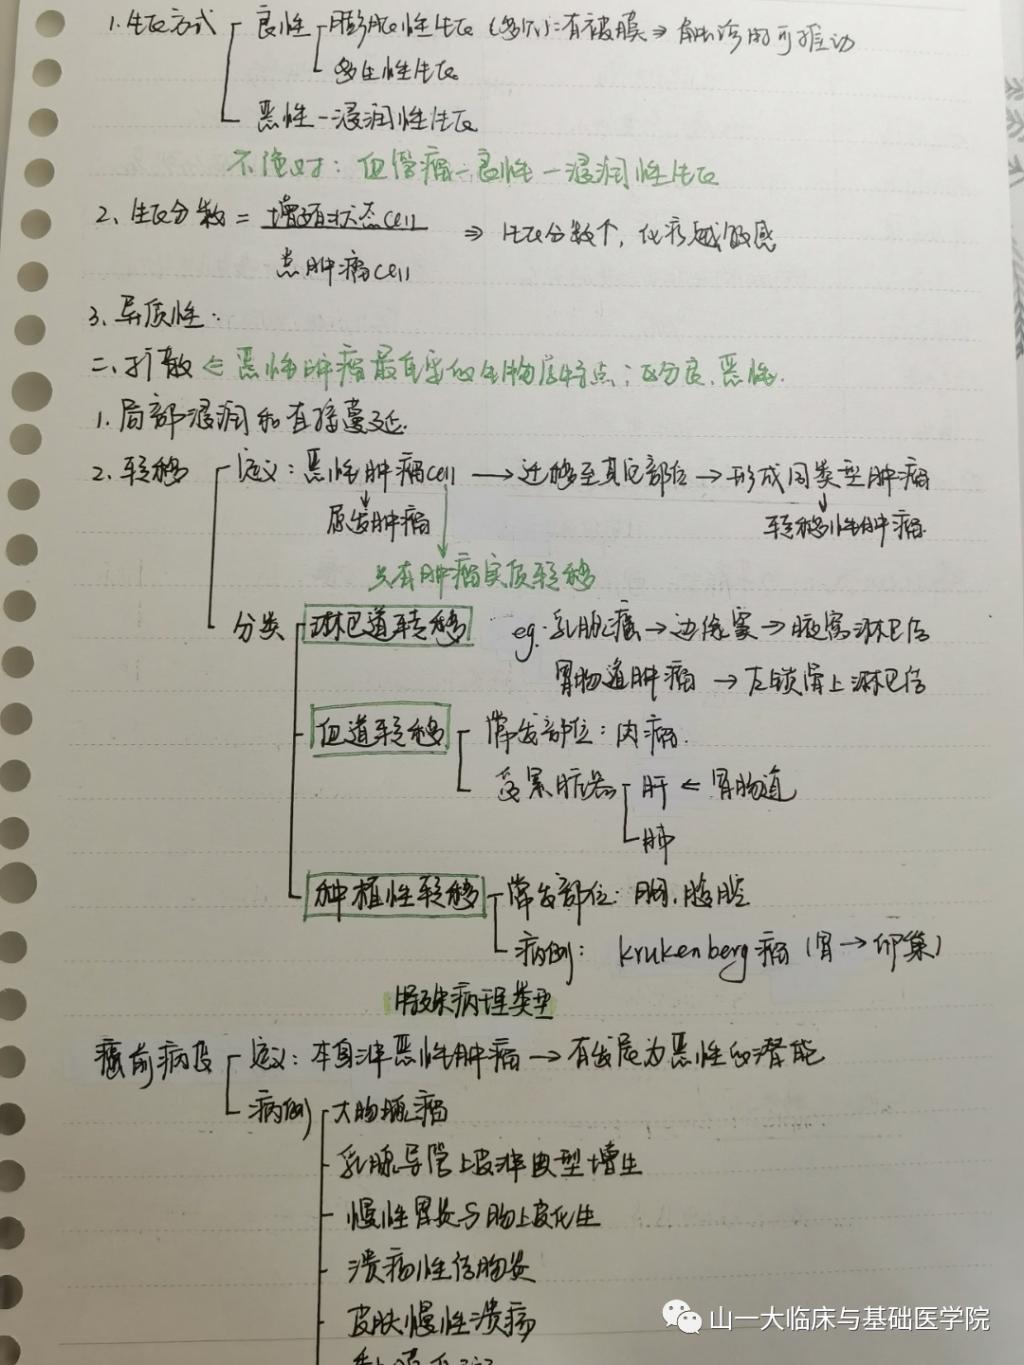 1. 生长方式 良性 膨胀性生长 (多见): 有被膜 → 触诊时可推动
外生性生长
恶性 - 浸润性生长
不绝对: 血管瘤 - 良性 - 浸润性生长
2. 生长分数 = 增殖状态cell ⇒ 生长分数↑, 化疗越敏感
总肿瘤cell
3. 异质性.
二、扩散 ← 恶性肿瘤最重要的生物学特点; 区分良、恶性.
1. 局部浸润和直接蔓延.
2. 转移 定义: 恶性肿瘤cell → 迁移至其它部位 → 形成同类型肿瘤
原发肿瘤 转移性肿瘤.
只有肿瘤实质转移
分类 淋巴道转移 eg. 乳腺癌 → 边缘窦 → 腋窝淋巴结
胃肠道肿瘤 → 左锁骨上淋巴结
血道转移 常发部位: 肉瘤.
受累脏器 肝 ← 胃肠道
肺
种植性转移 常发部位: 胸、腹腔
病例: krukenberg瘤 (胃 → 卵巢)
特殊病理类型
癌前病变 定义: 本身非恶性肿瘤 → 有发展为恶性的潜能
病例 大肠腺瘤
乳腺导管上皮非典型增生
慢性胃炎与肠上皮化生
溃疡性结肠炎
皮肤慢性溃疡
山一大临床与基础医学院